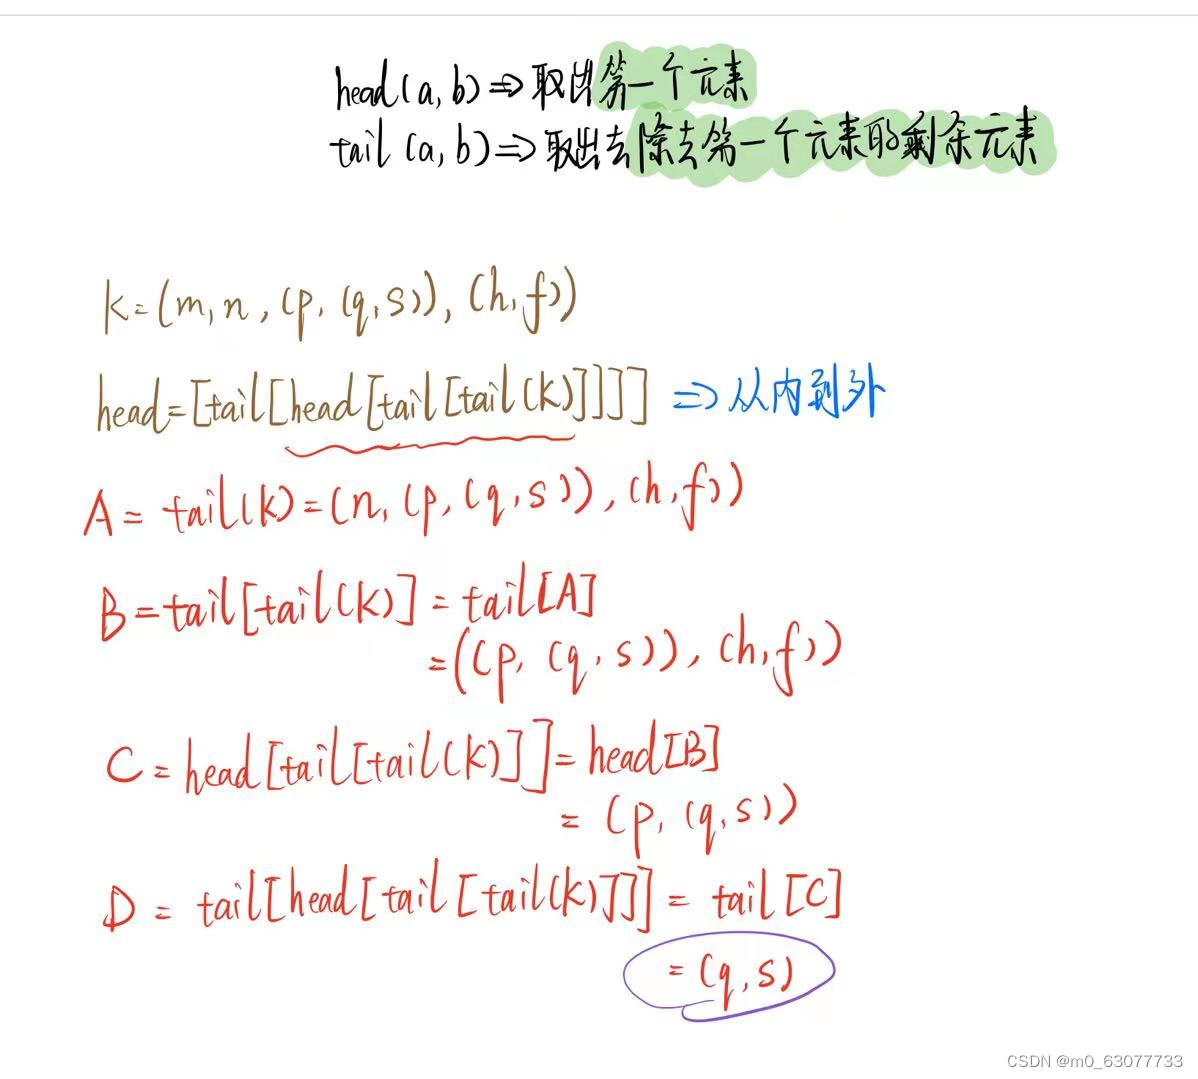 head(a,b)⇒取出第一个元素
tail(a,b)⇒取出去除去第一个元素的剩余元素
K=(m,n,(p,(q,s)),(h,f))
head=[tail[head[tail[tail(K)]]]] ⇒从内到外
A=tail(K)=(n,(p,(q,s)),(h,f))
B=tail[tail(K)]=tail[A]
=((p,(q,s)),(h,f))
C=head[tail[tail(K)]]=head[B]
=(p,(q,s))
D=tail[head[tail[tail(K)]]]=tail[C]
=(q,s)
CSDN @m0_63077733